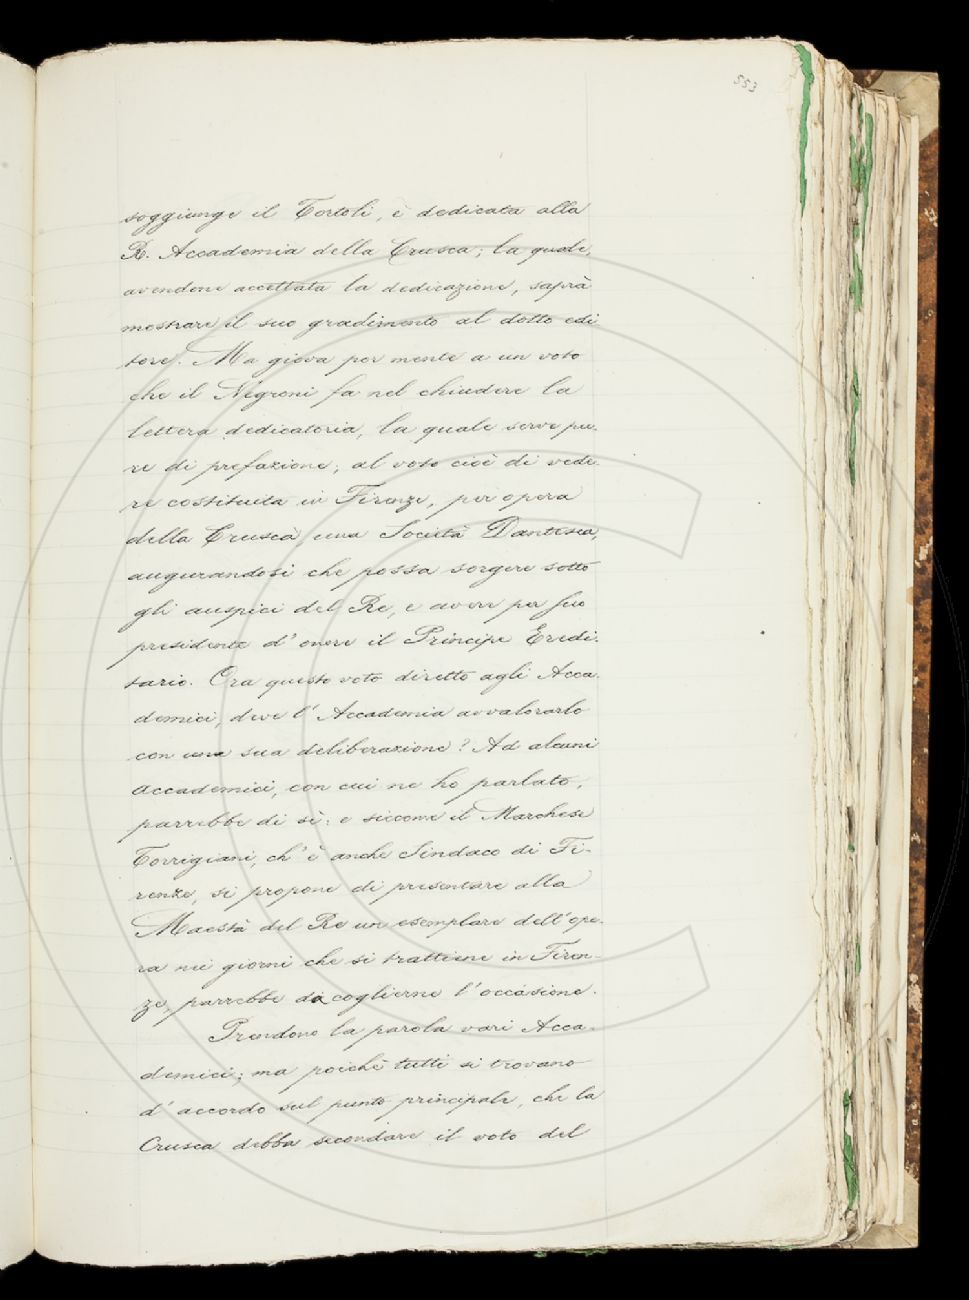 553
soggiunge il Tortoli, è dedicata alla
R. Accademia della Crusca; la quale,
avendone accettata la dedicazione, saprà
mostrare il suo gradimento al dotto edi
tore. Ma giova por mente a un voto
che il Negroni fa nel chiudere la
lettera dedicatoria, la quale serve pu-
re di prefazione; al voto cioè di vede-
re costituita in Firenze, per opera
della Crusca, una Società Dantesca,
augurandosi che possa sorgere sotto
gli auspici del Re, e avere per suo
presidente d'onore il Principe Eredi-
tario. Ora questo voto diretto agli Acca-
demici, deve l'Accademia avvalorarlo
con una sua deliberazione? Ad alcuni
Accademici, con cui ne ho parlato,
parrebbe di sì: e siccome il Marchese
Torrigiani, ch'è anche Sindaco di Fi-
renze, si propone di presentare alla
Maestà del Re un esemplare dell'ope-
ra nei giorni che si trattiene in Firen-
ze, parrebbe da coglierne l'occasione.
Prendono la parola vari Acca-
demici; ma poichè tutti si trovano
d'accordo sul punto principale, che la
Crusca debba secondare il voto del